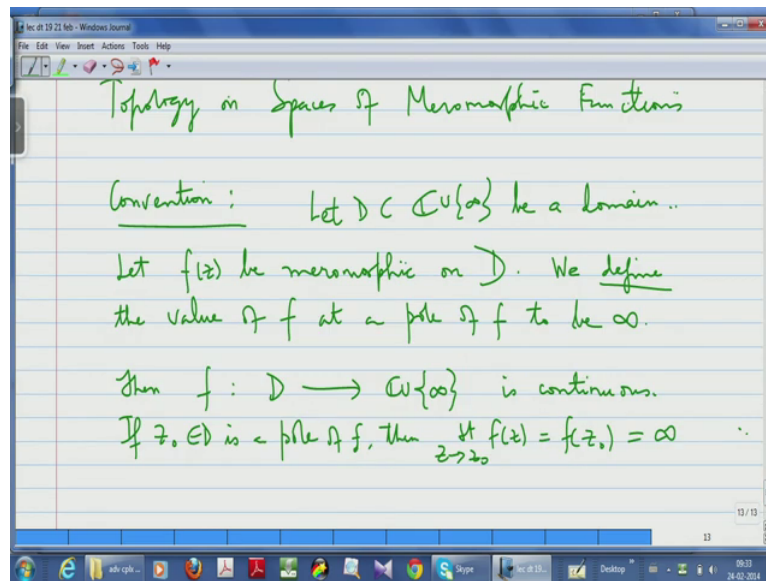 lec dt 19 21 feb - Windows Journal
File Edit View Insert Actions Tools Help
Topology on Spaces of Meromorphic Functions
Convention: Let D ⊂ ℂ∪{∞} be a domain..
Let f(z) be meromorphic on D. We define
the value of f at a pole of f to be ∞.
Then f : D ⟶ ℂ∪{∞} is continuous.
If z₀ ∈ D is a pole of f, then lt z→z₀ f(z) = f(z₀) = ∞
13 / 13
13
adv cplx ...
Skype
lec dt 19...
Desktop
09:33
24-02-2014